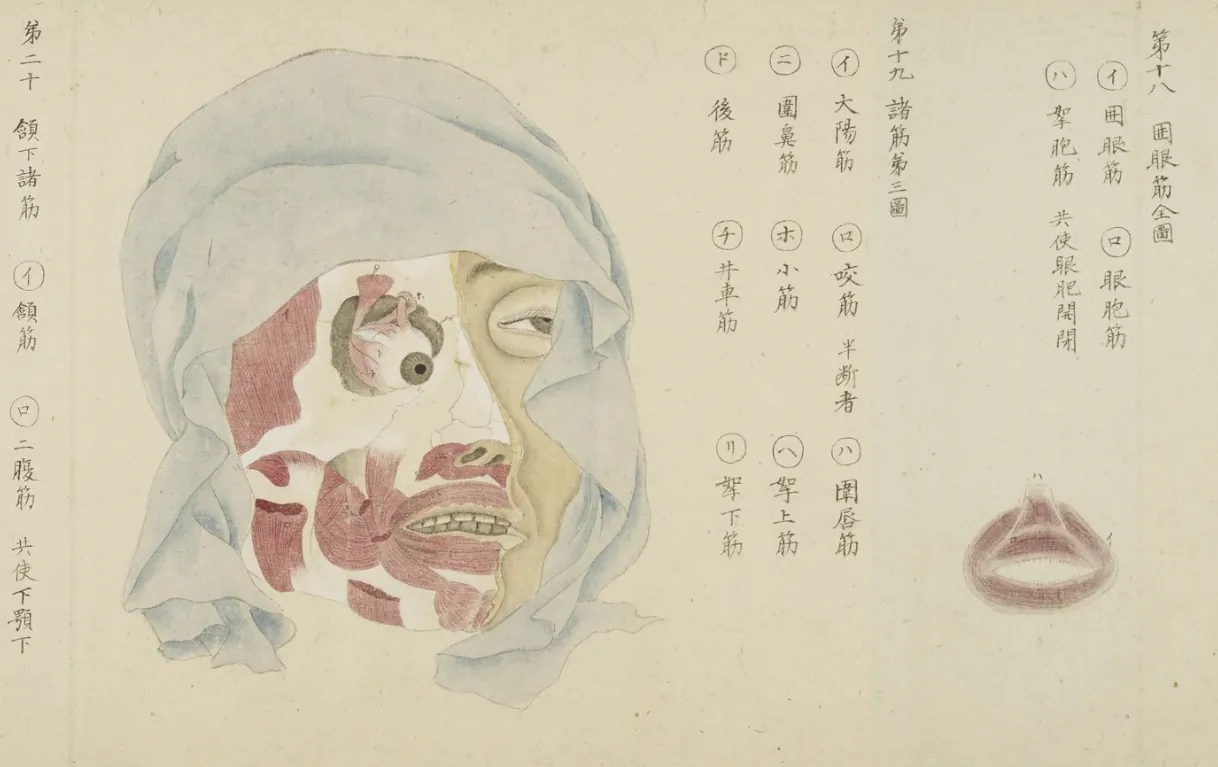 第十八 囲眼筋全圖
イ 囲眼筋 ロ 眼胞筋
ハ 挈胞筋 共使眼胞開閉
第十九 諸筋第三圖
イ 大陽筋 ロ 咬筋 半断者 ハ 圍唇筋
ニ 圍鼻筋 ホ 小筋 ヘ 挈上筋
ド 後筋 チ 井車筋 リ 挈下筋
第二十 頷下諸筋 イ 頷筋 ロ 二腹筋 共使下顎下